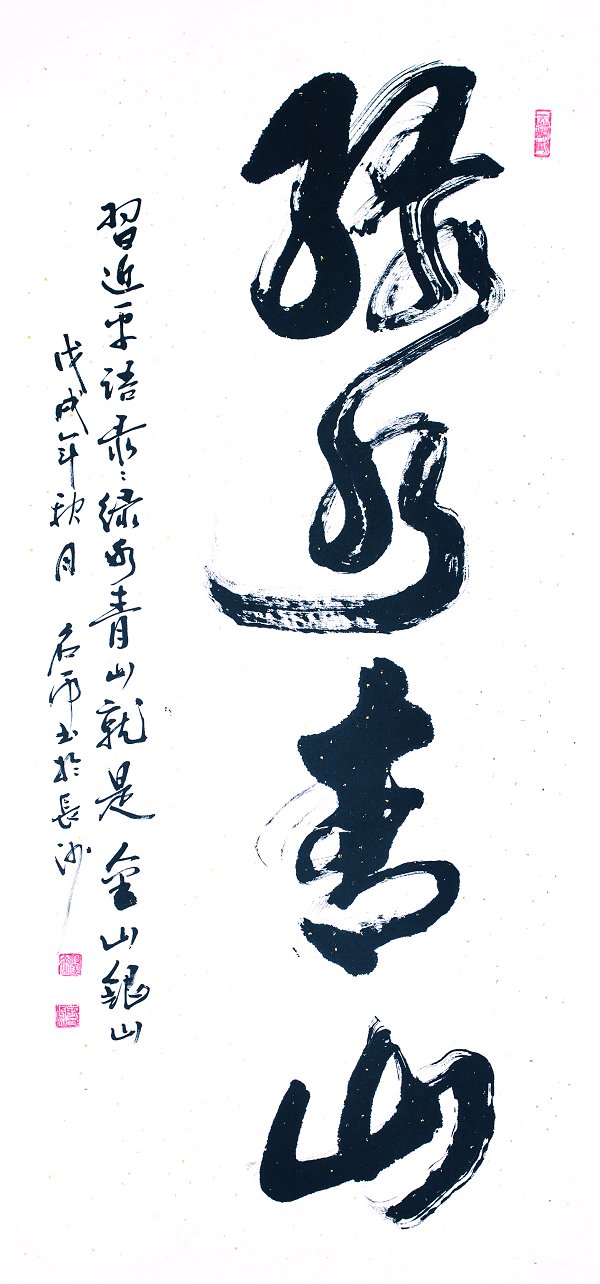 绿水青山
習近平语录：绿水青山就是金山银山
戊戌年秋月 石沛书於長沙